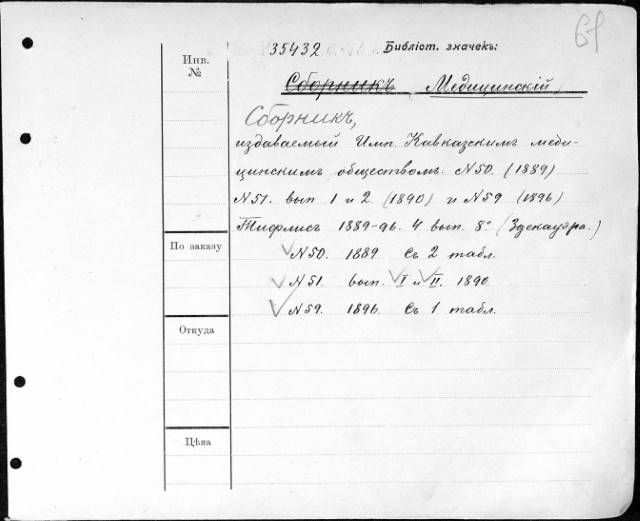 69
35432
Библіот. значекъ:
Инв.
№
Сборникъ Медицинскій
Сборникъ,
издаваемый Имп. Кавказскимъ меди-
цинскимъ обществомъ. №50. (1889)
№51. вып 1 и 2. (1890) и №59 (1896)
Тифлисъ 1889-96. 4 вып. 8° (Здекауэра.)
По заказу
№50. 1889 Съ 2 табл.
№51. вып. I и II. 1890
№59. 1896. Съ 1 табл.
Откуда
Цѣна